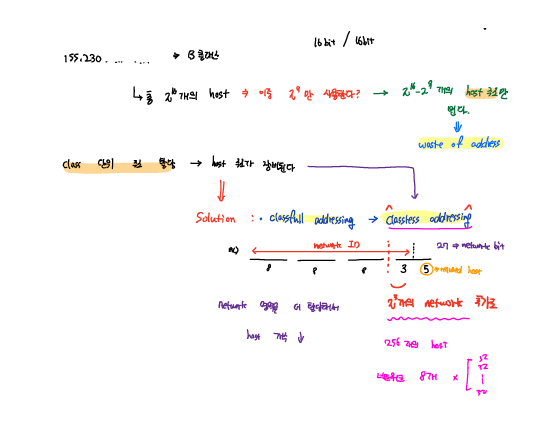 16bit / 16bit
155.230. ... .... ⇒ B클래스
↳ 총 2^16개의 host ⇒ 이중 2^9만 사용한다? → 2^16-2^9 개의 host 주소만
waste of address
Class 단위 주소 할당 → host 주소가 낭비된다
Solution : • classfull addressing → Classless addressing
ex) network ID 27 ⇒ network bit
8 8 8 3 5 host
network 영역을 더 할당해서 2^3개의 network 추가로
host 개수 ↓
256개의 host
네트워크 8개 × [ 32
32
|
32